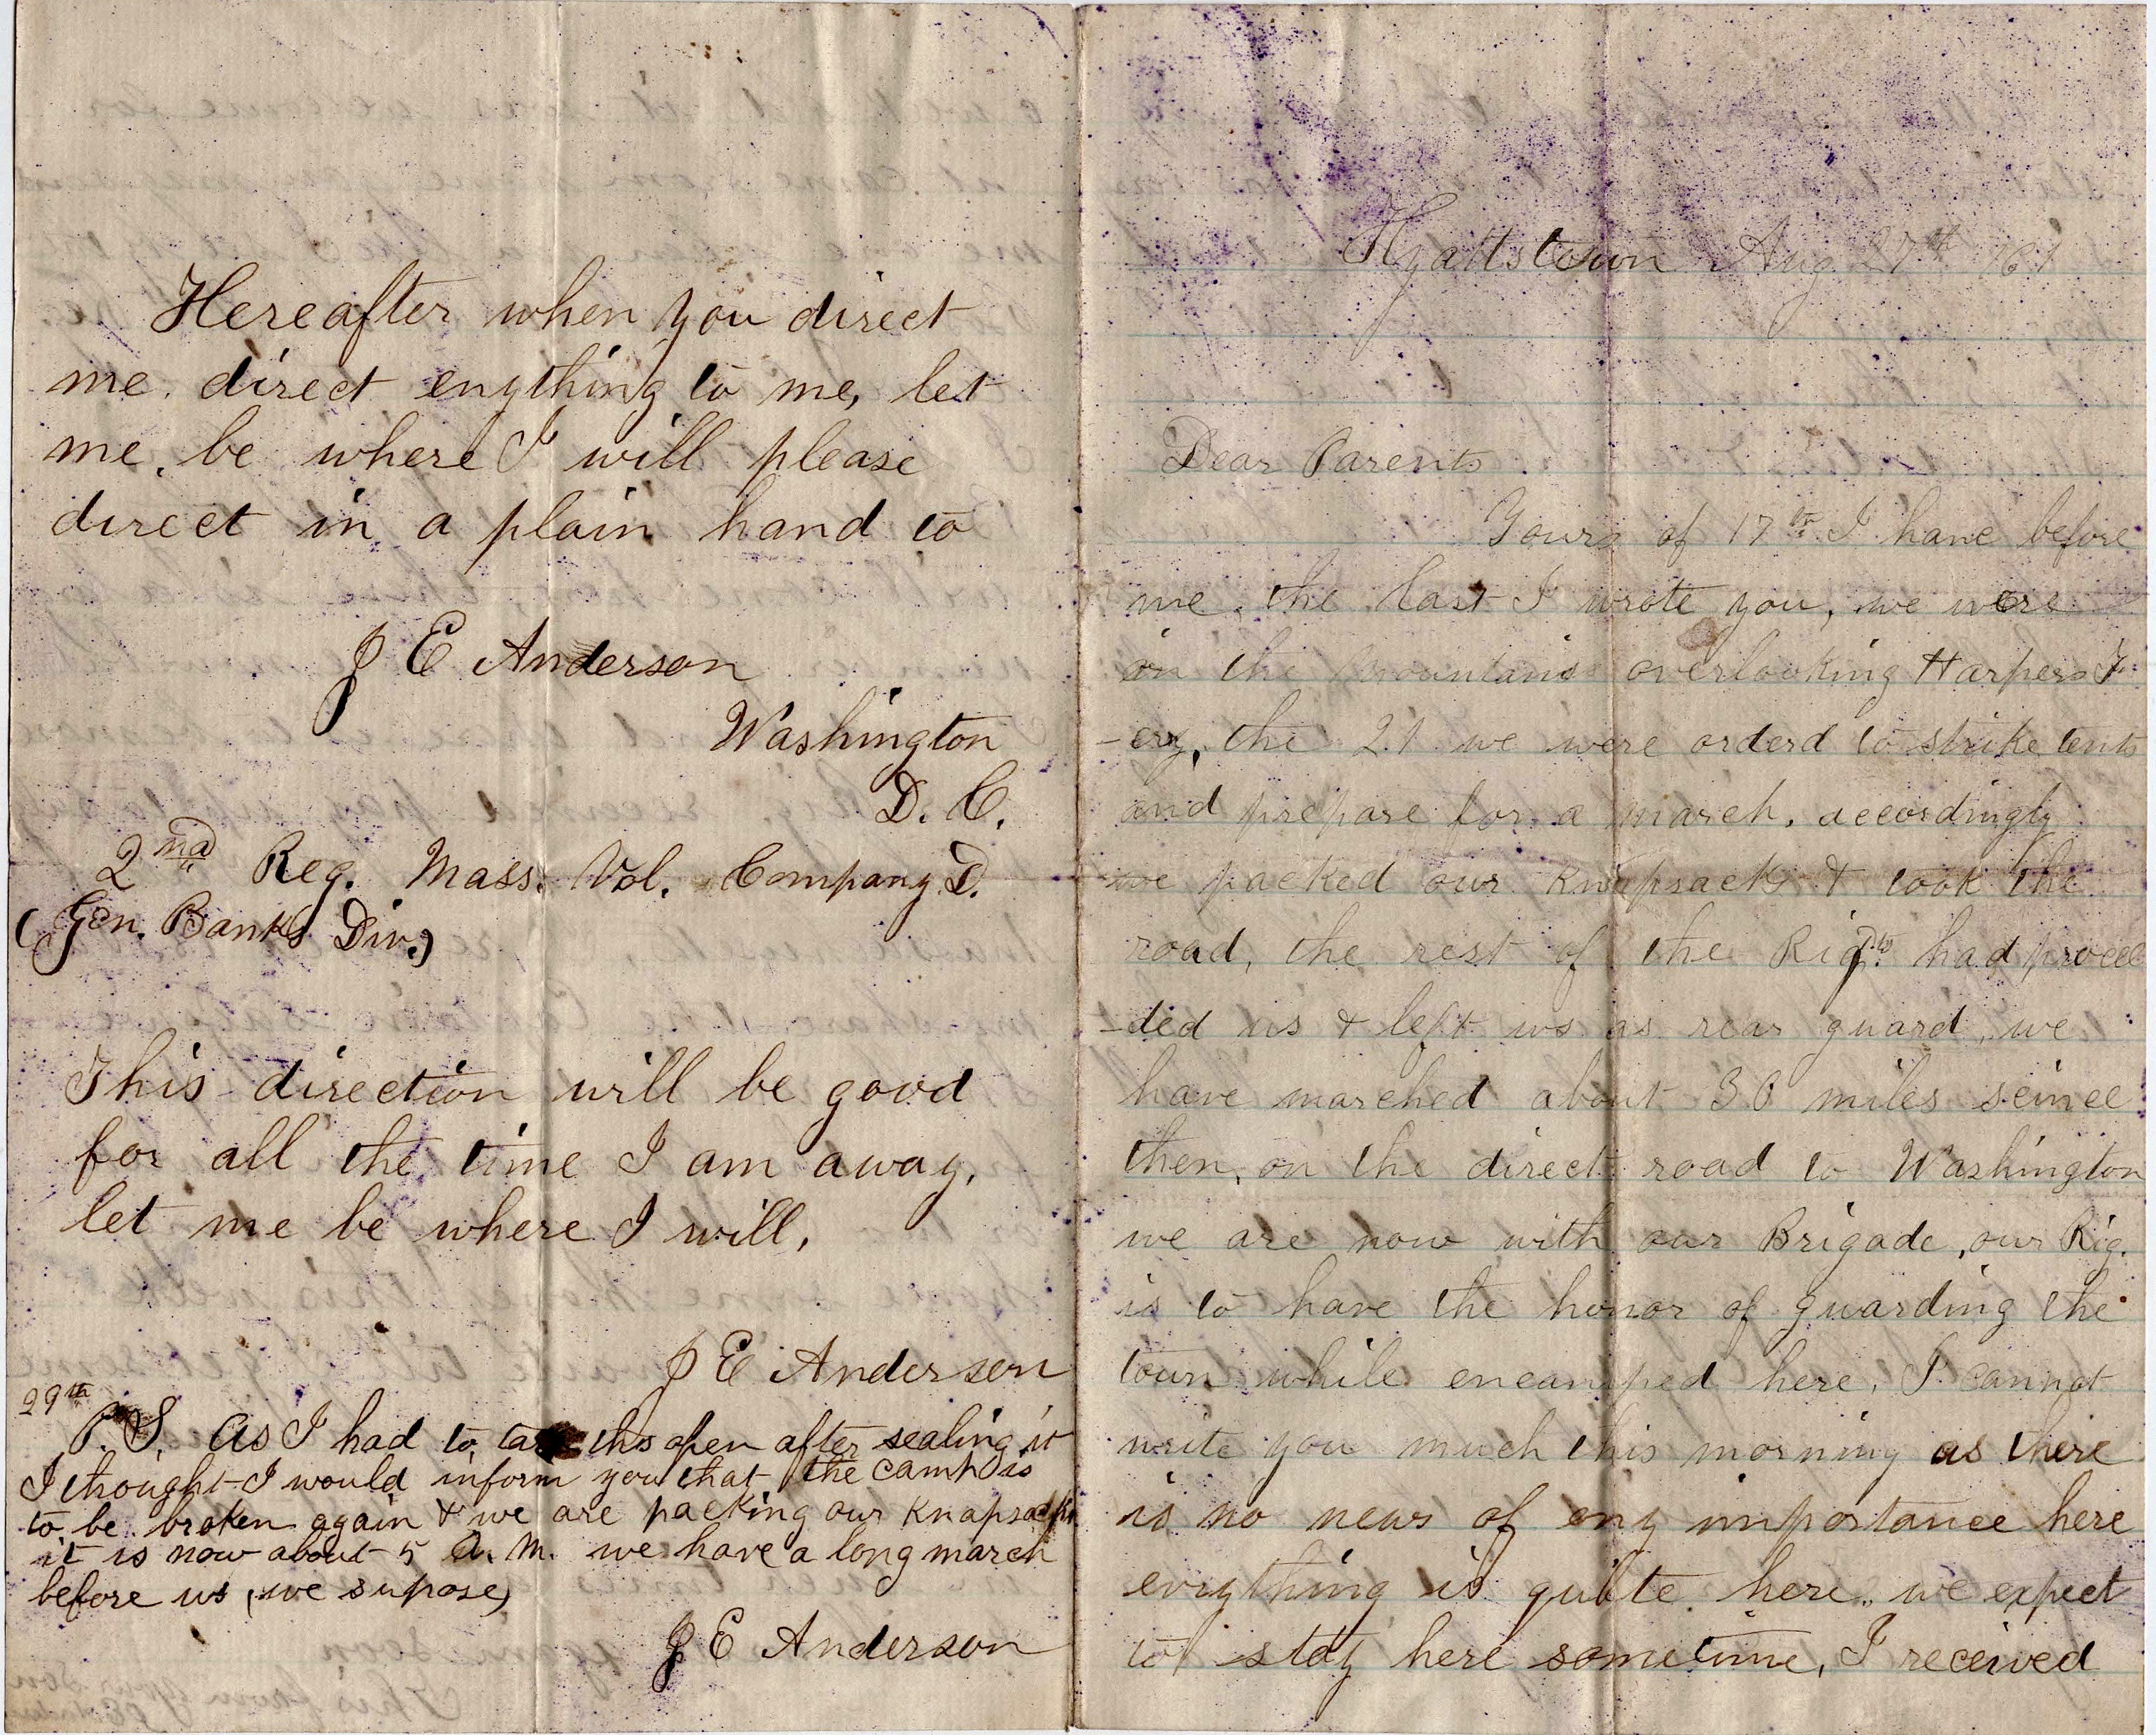 Hereafter when you direct
me. direct enything to me, let
me. be where I will please
direct in a plain hand to
J E Anderson
Washington
D. C.
2nd Reg. Mass. Vol. Company D.
(Gen. Banks Div.)
This direction will be good
for all the time I am away,
let me be where I will,
J E Anderson
29th
P. S. As I had to this open after sealing it
I thought I would inform you that the camp is
to be broken again & we are packing our knapsacks
it is now about 5 A. M. we have a long march
before us (we supose)
J E Anderson
Hyattstown Aug 27th /61
Dear Parents
Yours of 17th I have before
me, the last I wrote you, we were
on the mountains overlooking Harpers F
-ery, the 21 we were orderd to strike tents
and prepare for a march, accordingly
we packed our knapsacks & took the
road, the rest of the Rigt. had procee
-ded us & left us as rear guard, we
have marched about 30 miles seince
then, on the direct road to Washington
we are now with our Brigade, our Rig.
is to have the honor of guarding the
town while encamped here, I cannot
write you much this morning as there
is no news of eny importance here
evrything is quite here, we expect
to stay here sometime, I received